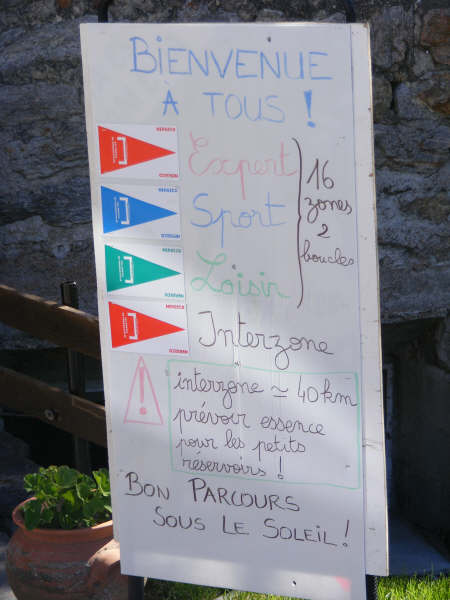 BIENVENUE
À TOUS !
Expert
Sport
Loisir
16
zones
2
boucles
Interzone
interzone ≃ 40km
prévoir essence
pour les petits
réservoirs !
BON PARCOURS
SOUS LE SOLEIL !